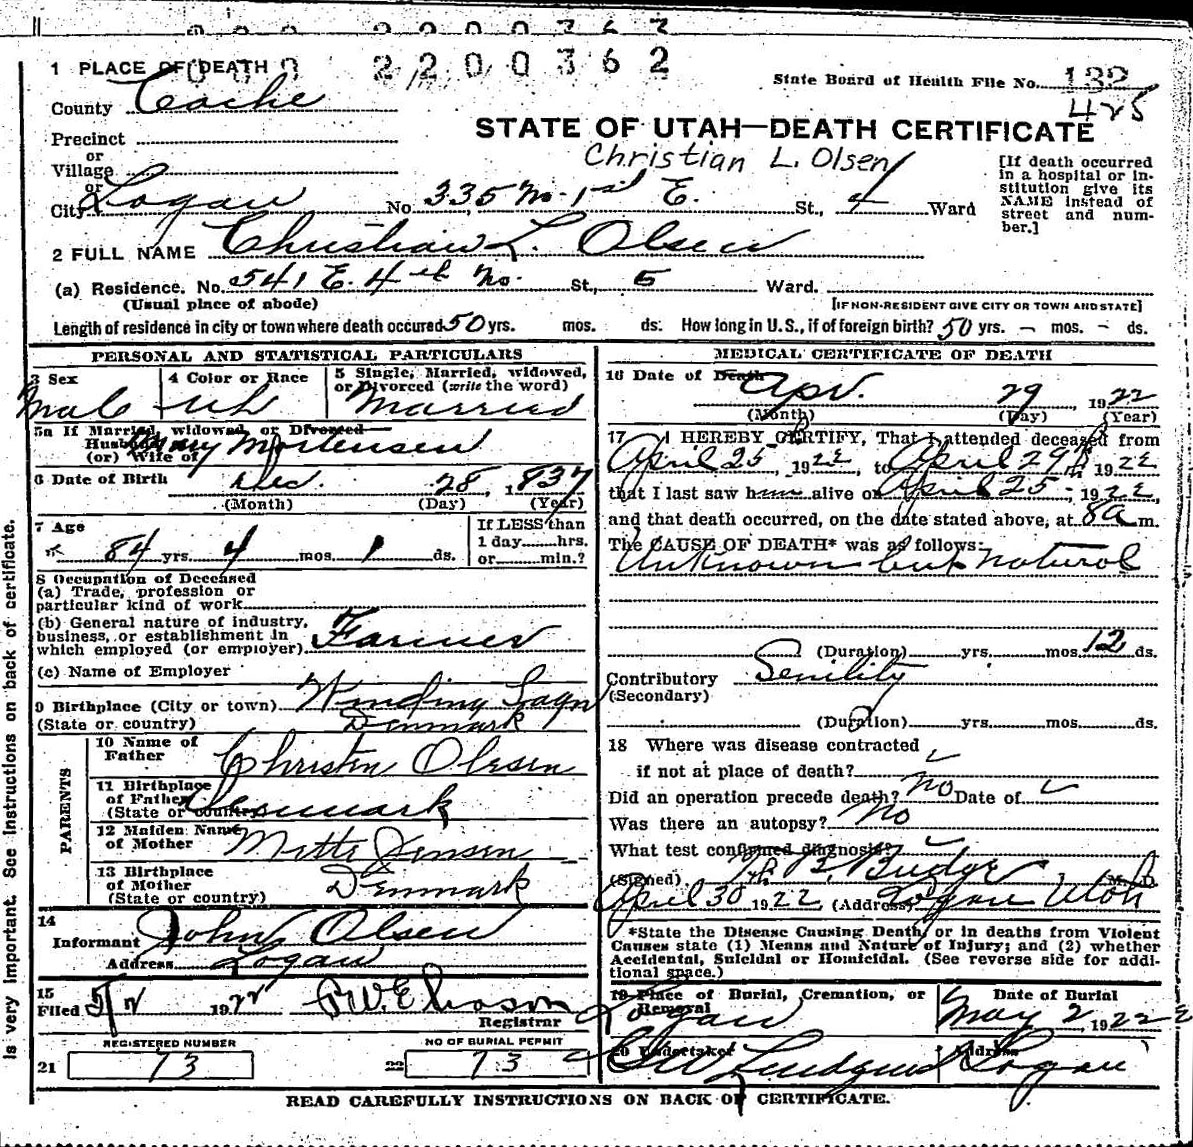 0 0 0 2 2 0 0 3 6 3
0 0 0 2 2 0 0 3 6 2
1 PLACE OF DEATH
State Board of Health File No. 132
425
County Cache
STATE OF UTAH—DEATH CERTIFICATE
Christian L. Olsen
Precinct
or
Village
or
City Logan No. 335 No. 1st E. St., 4 Ward
[If death occurred in a hospital or institution give its NAME instead of street and number.]
2 FULL NAME Christian L. Olsen
(a) Residence. No. 541 E. 4th No. St., 5 Ward.
(Usual place of abode) [IF NON-RESIDENT GIVE CITY OR TOWN AND STATE]
Length of residence in city or town where death occured 50 yrs. mos. ds. How long in U.S., if of foreign birth? 50 yrs. – mos. – ds.
PERSONAL AND STATISTICAL PARTICULARS
3 Sex Male
4 Color or Race Wh
5 Single, Married, widowed, or Divorced (write the word) Married
5a If Married, widowed, or Divorced
Husband
(or) Wife of Mary Mortensen
6 Date of Birth Dec. 28, 1837
(Month) (Day) (Year)
7 Age 84 yrs. 4 mos. 1 ds.
If LESS than
1 day hrs.
or min.?
8 Occupation of Deceased
(a) Trade, profession or
particular kind of work
(b) General nature of industry,
business, or establishment in
which employed (or employer) Farmer
(c) Name of Employer
9 Birthplace (City or town)
(State or country) Denmark
PARENTS
10 Name of
Father Christen Olesen
11 Birthplace
of Father
(State or country) Denmark
12 Maiden Name
of Mother Mette Jensen
13 Birthplace
of Mother
(State or country) Denmark
14
Informant John Olsen
Address Logan
15
Filed 5/2 1922
Registrar
REGISTERED NUMBER
21 73
NO OF BURIAL PERMIT
22 73
MEDICAL CERTIFICATE OF DEATH
16 Date of Death Apr. 29, 1922
(Month) (Day) (Year)
17 I HEREBY CERTIFY, That I attended deceased from
April 25, 1922, to April 29, 1922
that I last saw him alive on April 25 - 1922,
and that death occurred, on the date stated above, at 8a m.
The CAUSE OF DEATH* was as follows:
Unknown but natural
(Duration) yrs. mos. 12 ds.
Contributory Senility
(Secondary)
(Duration) yrs. mos. ds.
18 Where was disease contracted
if not at place of death?
Did an operation precede death? No Date of
Was there an autopsy? No
What test confirmed diagnosis?
(Signed) Budge M. D.
April 30 1922 (Address) Logan Utah
*State the Disease Causing Death, or in deaths from Violent
Causes state (1) Means and Nature of Injury; and (2) whether
Accidental, Suicidal or Homicidal. (See reverse side for addi-
tional space.)
19 Place of Burial, Cremation, or
Removal Logan
Date of Burial
May 2, 1922
20 Undertaker Lundquist
Address Logan
READ CAREFULLY INSTRUCTIONS ON BACK OF CERTIFICATE.
is very important. See instructions on back of certificate.